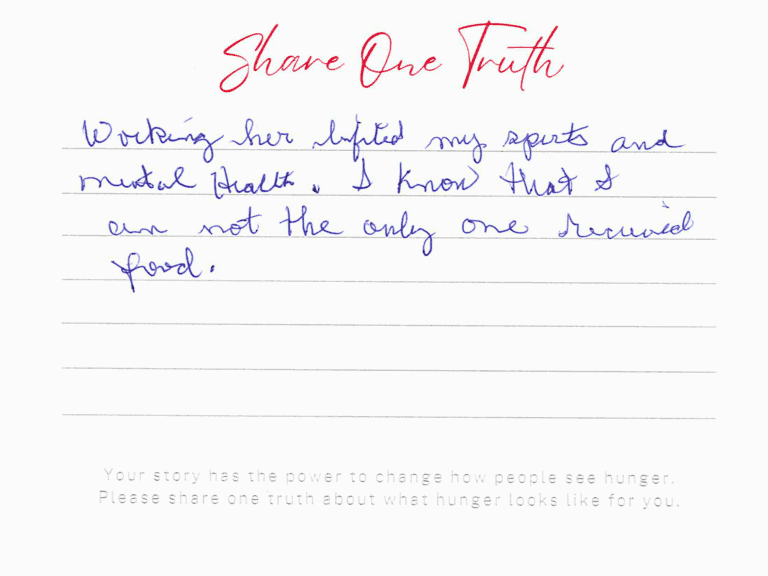 Share One Truth
Working her lifted my sperts and
mental Health. I know that I
am not the only one recuvied
food.
Your story has the power to change how people see hunger.
Please share one truth about what hunger looks like for you.